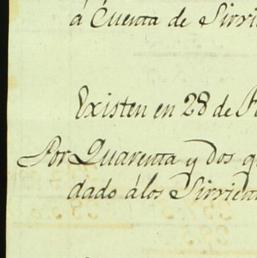 á Cuenta de Sirvi
Existen en 28 de F
Por Quarenta y dos q
dado álos Sirvient